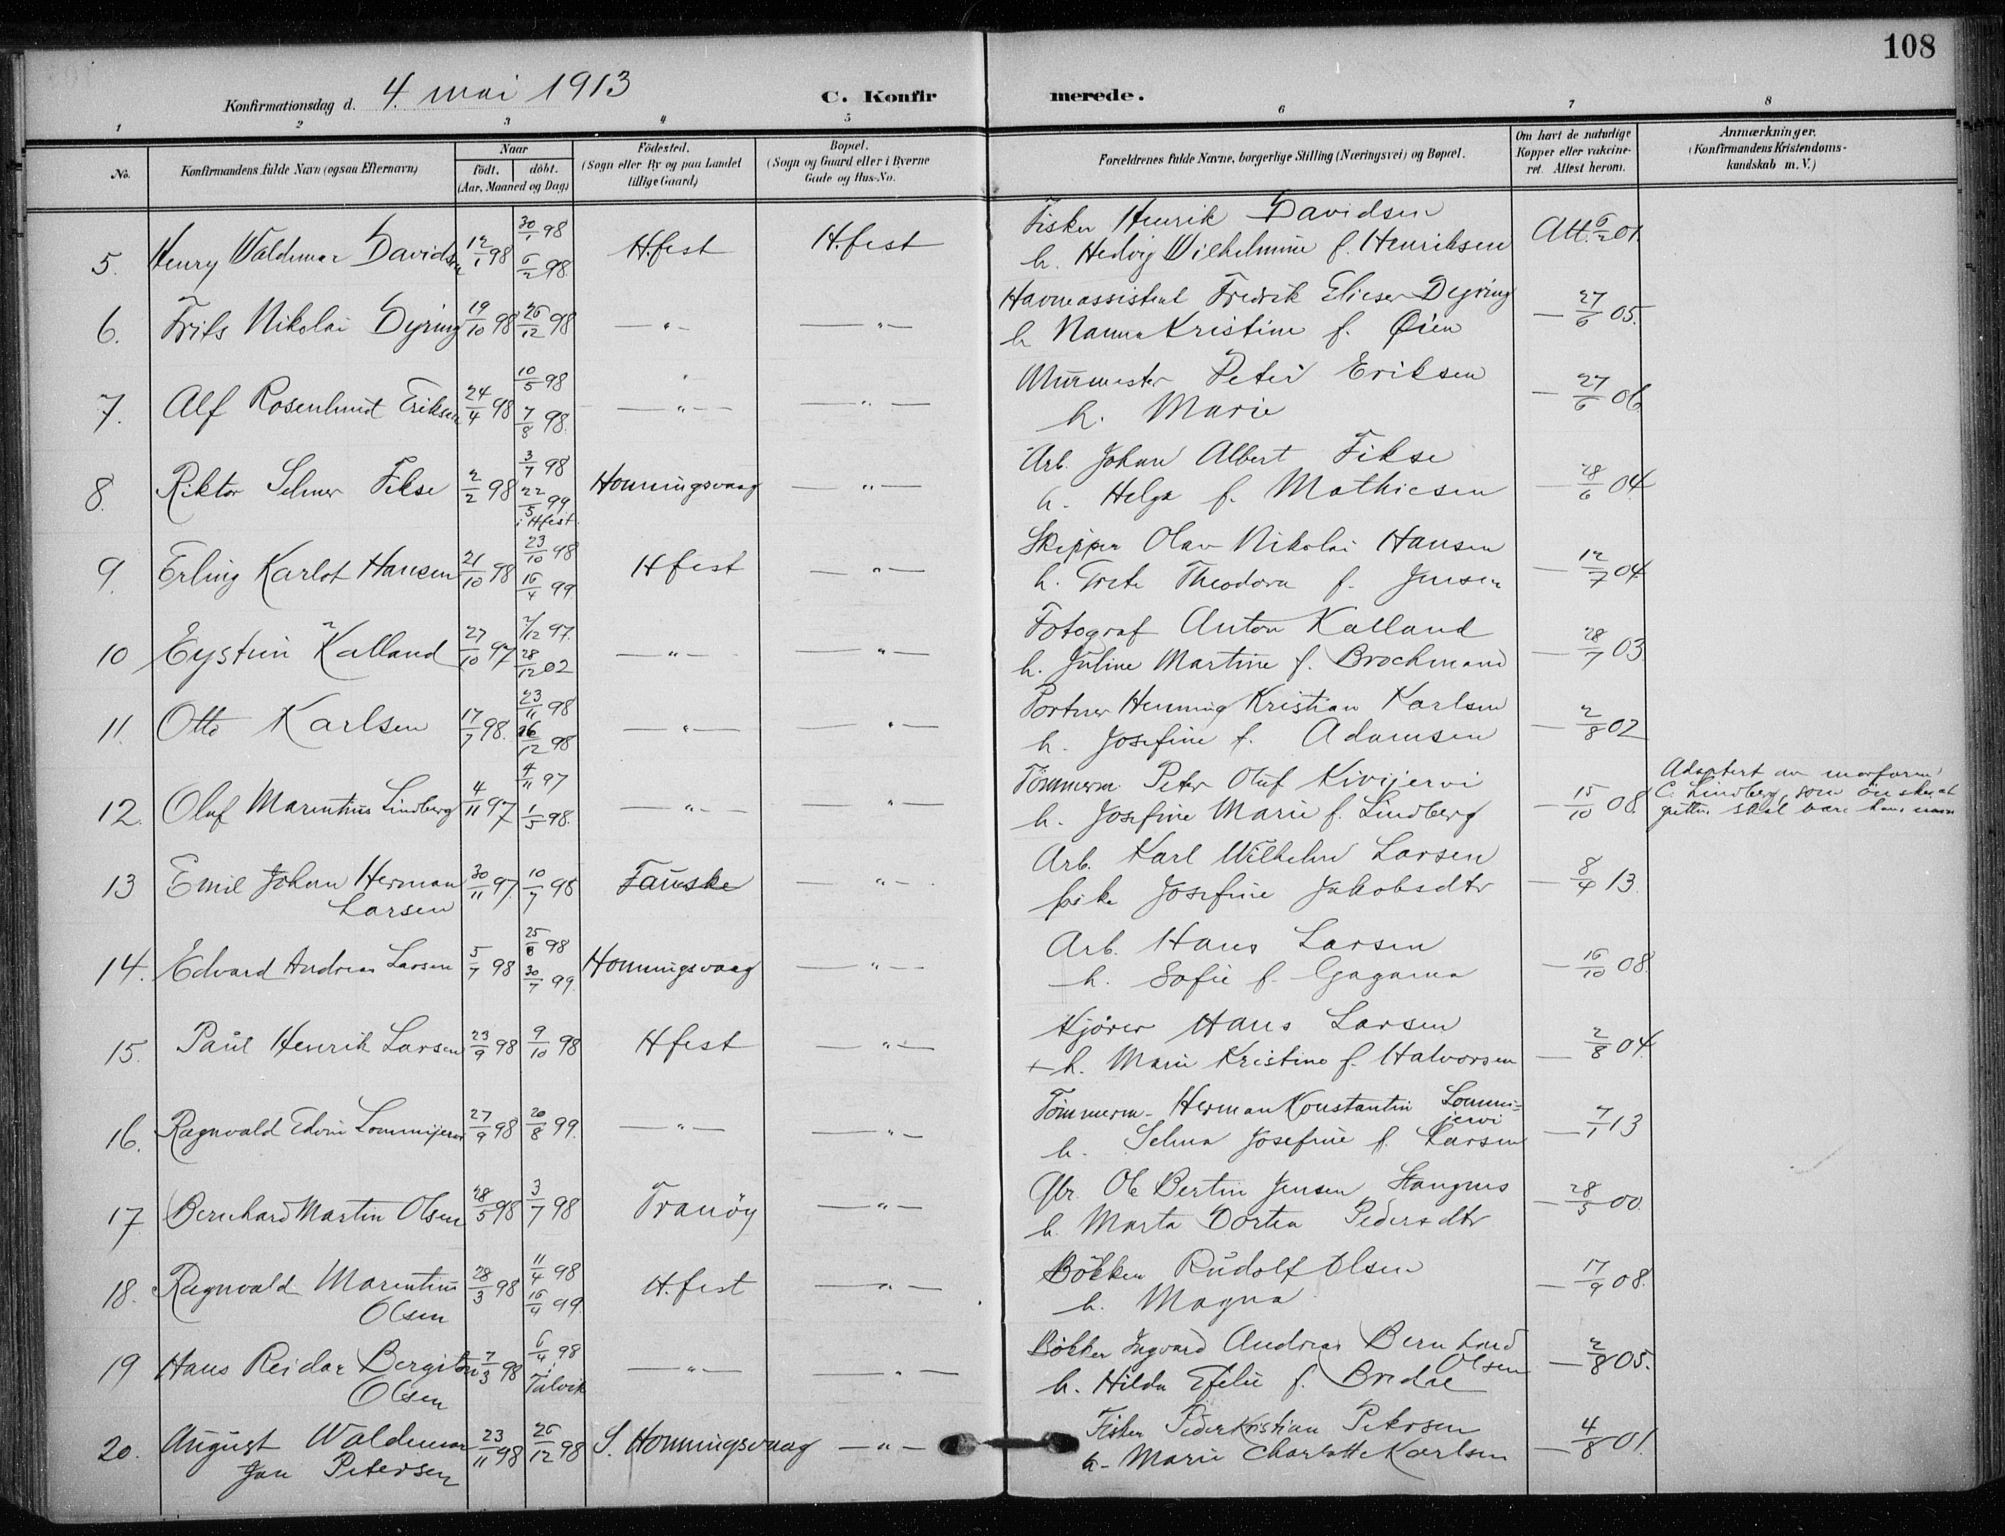 108
Konfirmationsdag d. 4. mai 1913
C. Konfirmerede.
1 2 3 4 5 6 7 8
No.
Konfirmandens fulde Navn (ogsaa Efternavn)
Naar
født. døbt.
(Aar, Maaned og Dag)
Fødested.
(Sogn eller By og paa Landet
tillige Gaard)
Bopæl.
(Sogn og Gaard eller i Byerne
Gade og Hus-No.
Forældrenes fulde Navne, borgerlige Stilling (Næringsvei) og Bopæl.
Om havt de naturlige
Kopper eller vakcine-
ret. Attest herom.
Anmærkninger.
(Konfirmandens Kristendoms-
kundskab m. V.)
5. Henry Waldemar Davidsen 12/1 98 30/1 98 6/2 98 H.fest H.fest
Fisker Henrik Davidsen
h. Hedvig Wilhelmine f. Henriksen
Att. 6/2 01.
6. Frits Nikolai Dyring 19/10 98 26/12 98 — " — — " —
Havneassistent Fredrik Elieser Dyring
h Nanna Kristine f. Øien
— 27/6 05.
7. Alf Rosenlund Eriksen 24/4 98 10/5 98 7/8 98. — " — — " —
Murmester Peter Eriksen
h. Marie
— 27/6 06
8. Riktor Selmer Fikse 2/2 98 3/7 98 22/5 99 i Hfest. Honningsvaag — " —
Arb. Johan Albert Fikse
h. Helga f. Mathiesen
— 28/6 04
9. Erling Karlot Hansen 21/10 98 23/10 98 16/4 99. Hfest — " —
Skipper Olav Nikolai Hansen
h. Grete Theodora f. Jensen
— 12/7 04
10 Eystein Kalland 27/10 97 2/12 97. 28/12 02 — " — — " —
Fotograf Anton Kalland
h. Juline Martine f. Brochmand
— 28/7 03.
11. Otto Karlsen 17/7 98. 23/11 98 26/12 98 — " — — " —
Portner Henning Kristian Karlsen
h. Josefine f. Adamsen
— 2/8 02
12. Olaf Marentius Lindberg 4/11 97 4/11 97 1/5 98. — " — — " —
Tömmerm. Peter Oluf Kivijervi
h. Josefine Marie f. Lindberg
— 15/10 08.
Adoptert av morfaren
C. Lindberg, som ønsker, at
gutten skal bære hans navn
13 Emil Johan Herman
Larsen 30/11 97. 10/7 98 Fauske — " —
Arb. Karl Wilhelm Larsen
pike Josefine Jakobsdtr
— 8/4 13.
14. Edvard Andreas Larsen 5/7 98 25/8 98 30/7 99. Honningsvaag — " —
Arb. Hans Larsen
h. Sofie f. Gagama
— 16/10 08.
15. Paul Henrik Larsen 23/9 98 9/10 98 Hfest — " —
Kjörer Hans Larsen
+ h. Marie Kristine f. Halvorsen
— 2/8 04.
16. Ragnvald Edvin Lommijervi 27/9 98 20/8 99. — " — — " —
Tömmerm. Herman Konstantin Lommi=
jervi
h. Selma Josefine f. Larsen
— 7/1 13
17 Bernhard Martin Olsen 28/5 98 3/7 98 Tranöy — " —
Gbr. Ole Bertin Jensen Stangnes
h. Marta Dortea Pedersdtr
— 28/5 00.
18. Ragnvald Marentius
Olsen 28/3 98 11/4 98 16/4 99. H.fest — " —
Bökker Rudolf Olsen
h. Magna
— 17/9 08.
19 Hans Reidar Bergiton
Olsen 7/3 98 6/4 98 i Talvik — " — — " —
Bökker Ingvard Andreas Bernhard
Olsen
h. Hilda Efelie f. Bredal
— 2/8 05.
20. August Waldemar
Jan Petersen 23/11 98 26/12 98 S. Honningsvaag — " —
Fisker Peder Kristian Petersen
h. Marie Charlotte Karlsen
— 4/8 01.